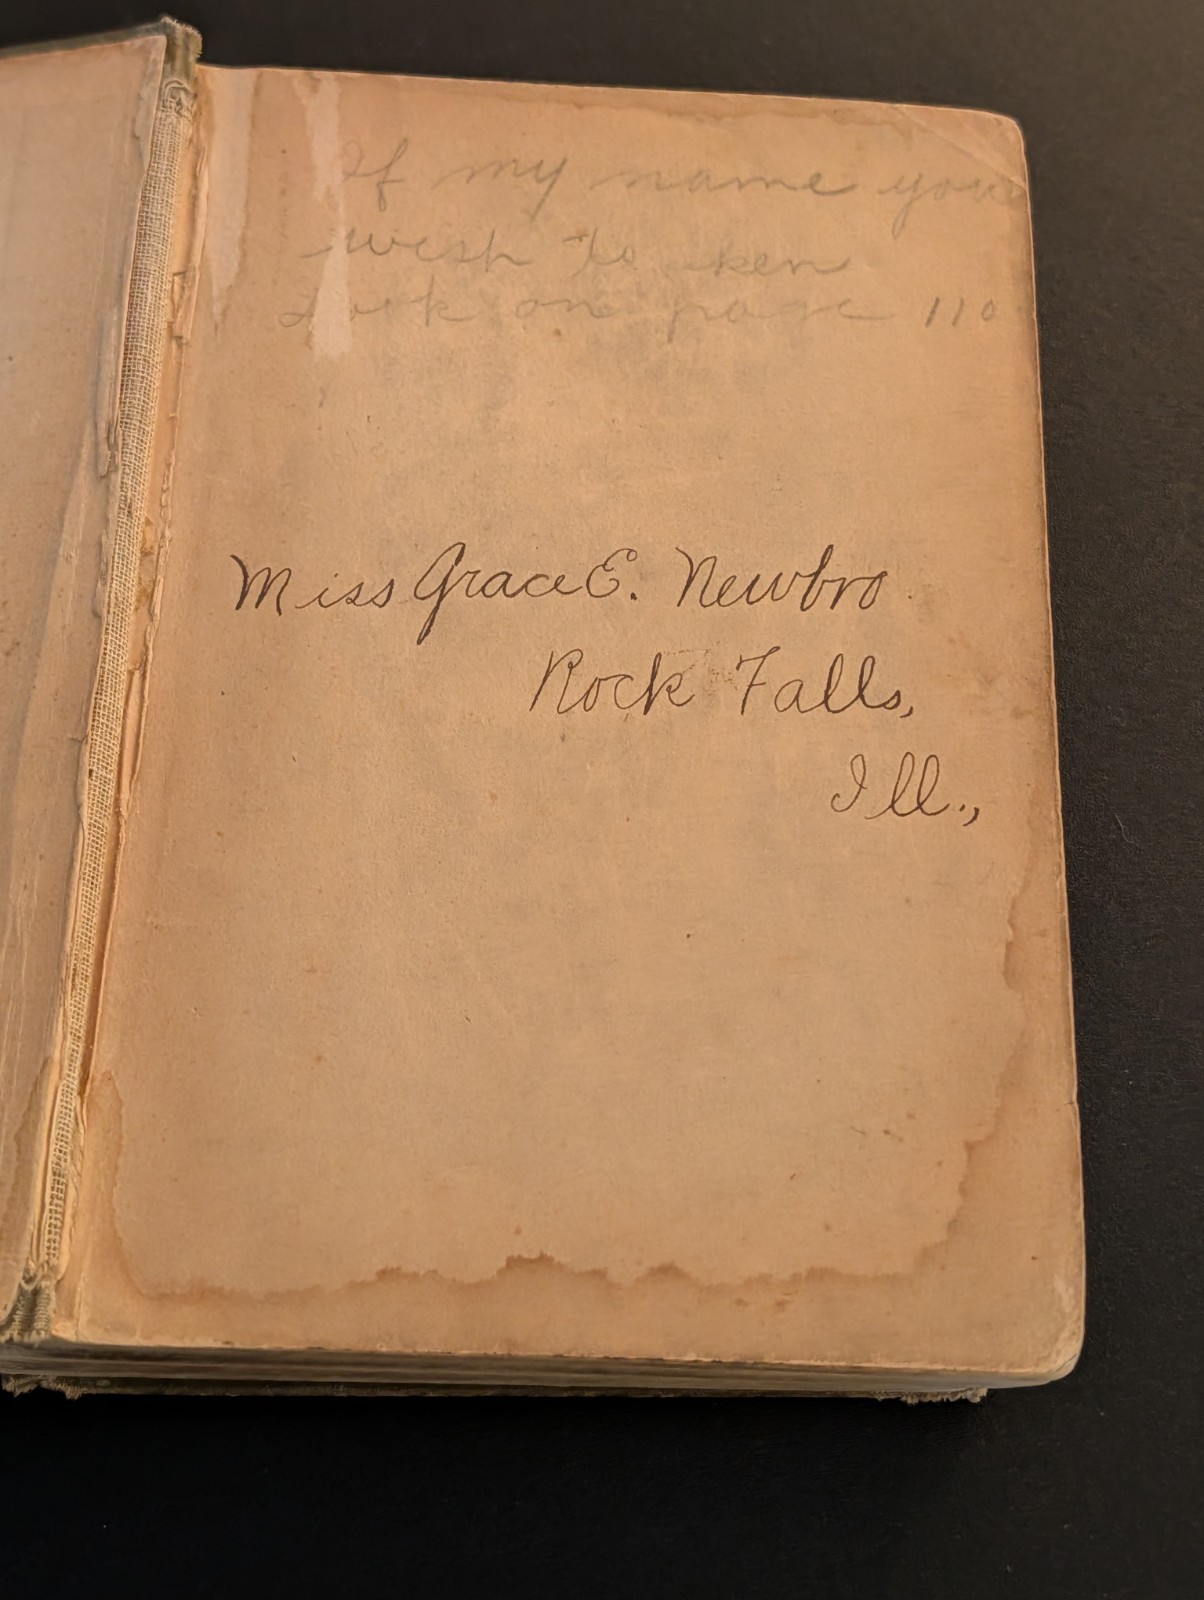 If my name you
wish to ken
Look on page 110
Miss Grace E. Newbro
Rock Falls,
Ill.,